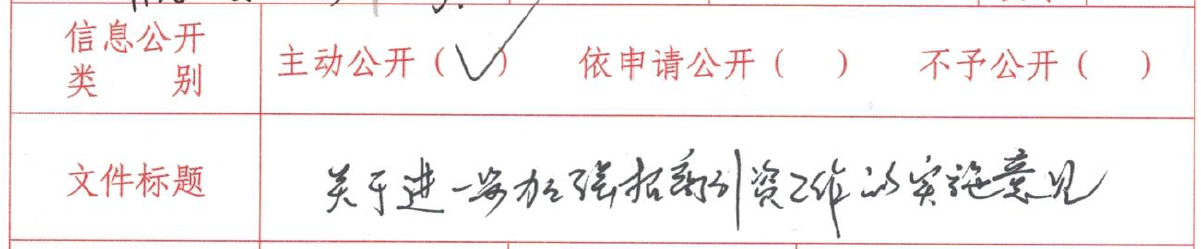 信息公开
类 别
主动公开（✓） 依申请公开（ ） 不予公开（ ）
文件标题
关于进一步加强招商引资工作的实施意见